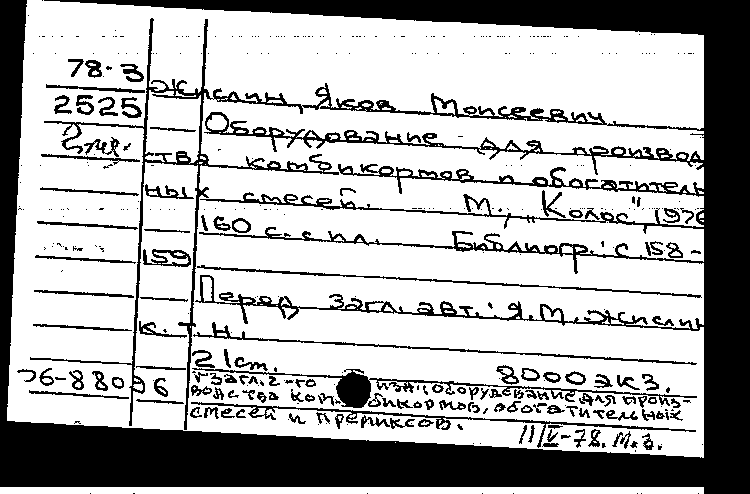 78-3
Жислин, Яков Моисеевич.
2525
Оборудование для производ
2 экз.
ства комбикормов и обогатитель
ных смесей. М., „Колос", 1976
160 с. с ил. Библиогр.: с. 158-
159
Перед загл. авт.: Я. М. Жислин
к. т. н.
21 см. 8000 экз.
76-88096
загл. 2-го изд.: Оборудование для произ-
водства комбикормов, обогатительных
смесей и премиксов.
11/V-78. М.З.